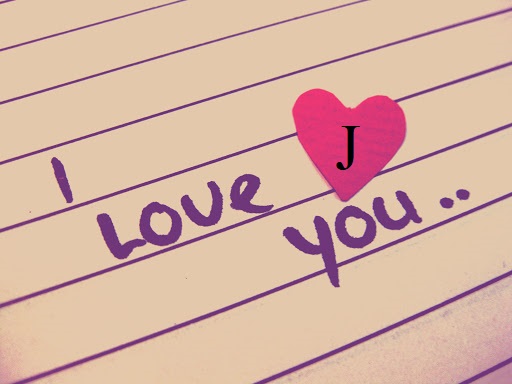 J
I LOVE
you..